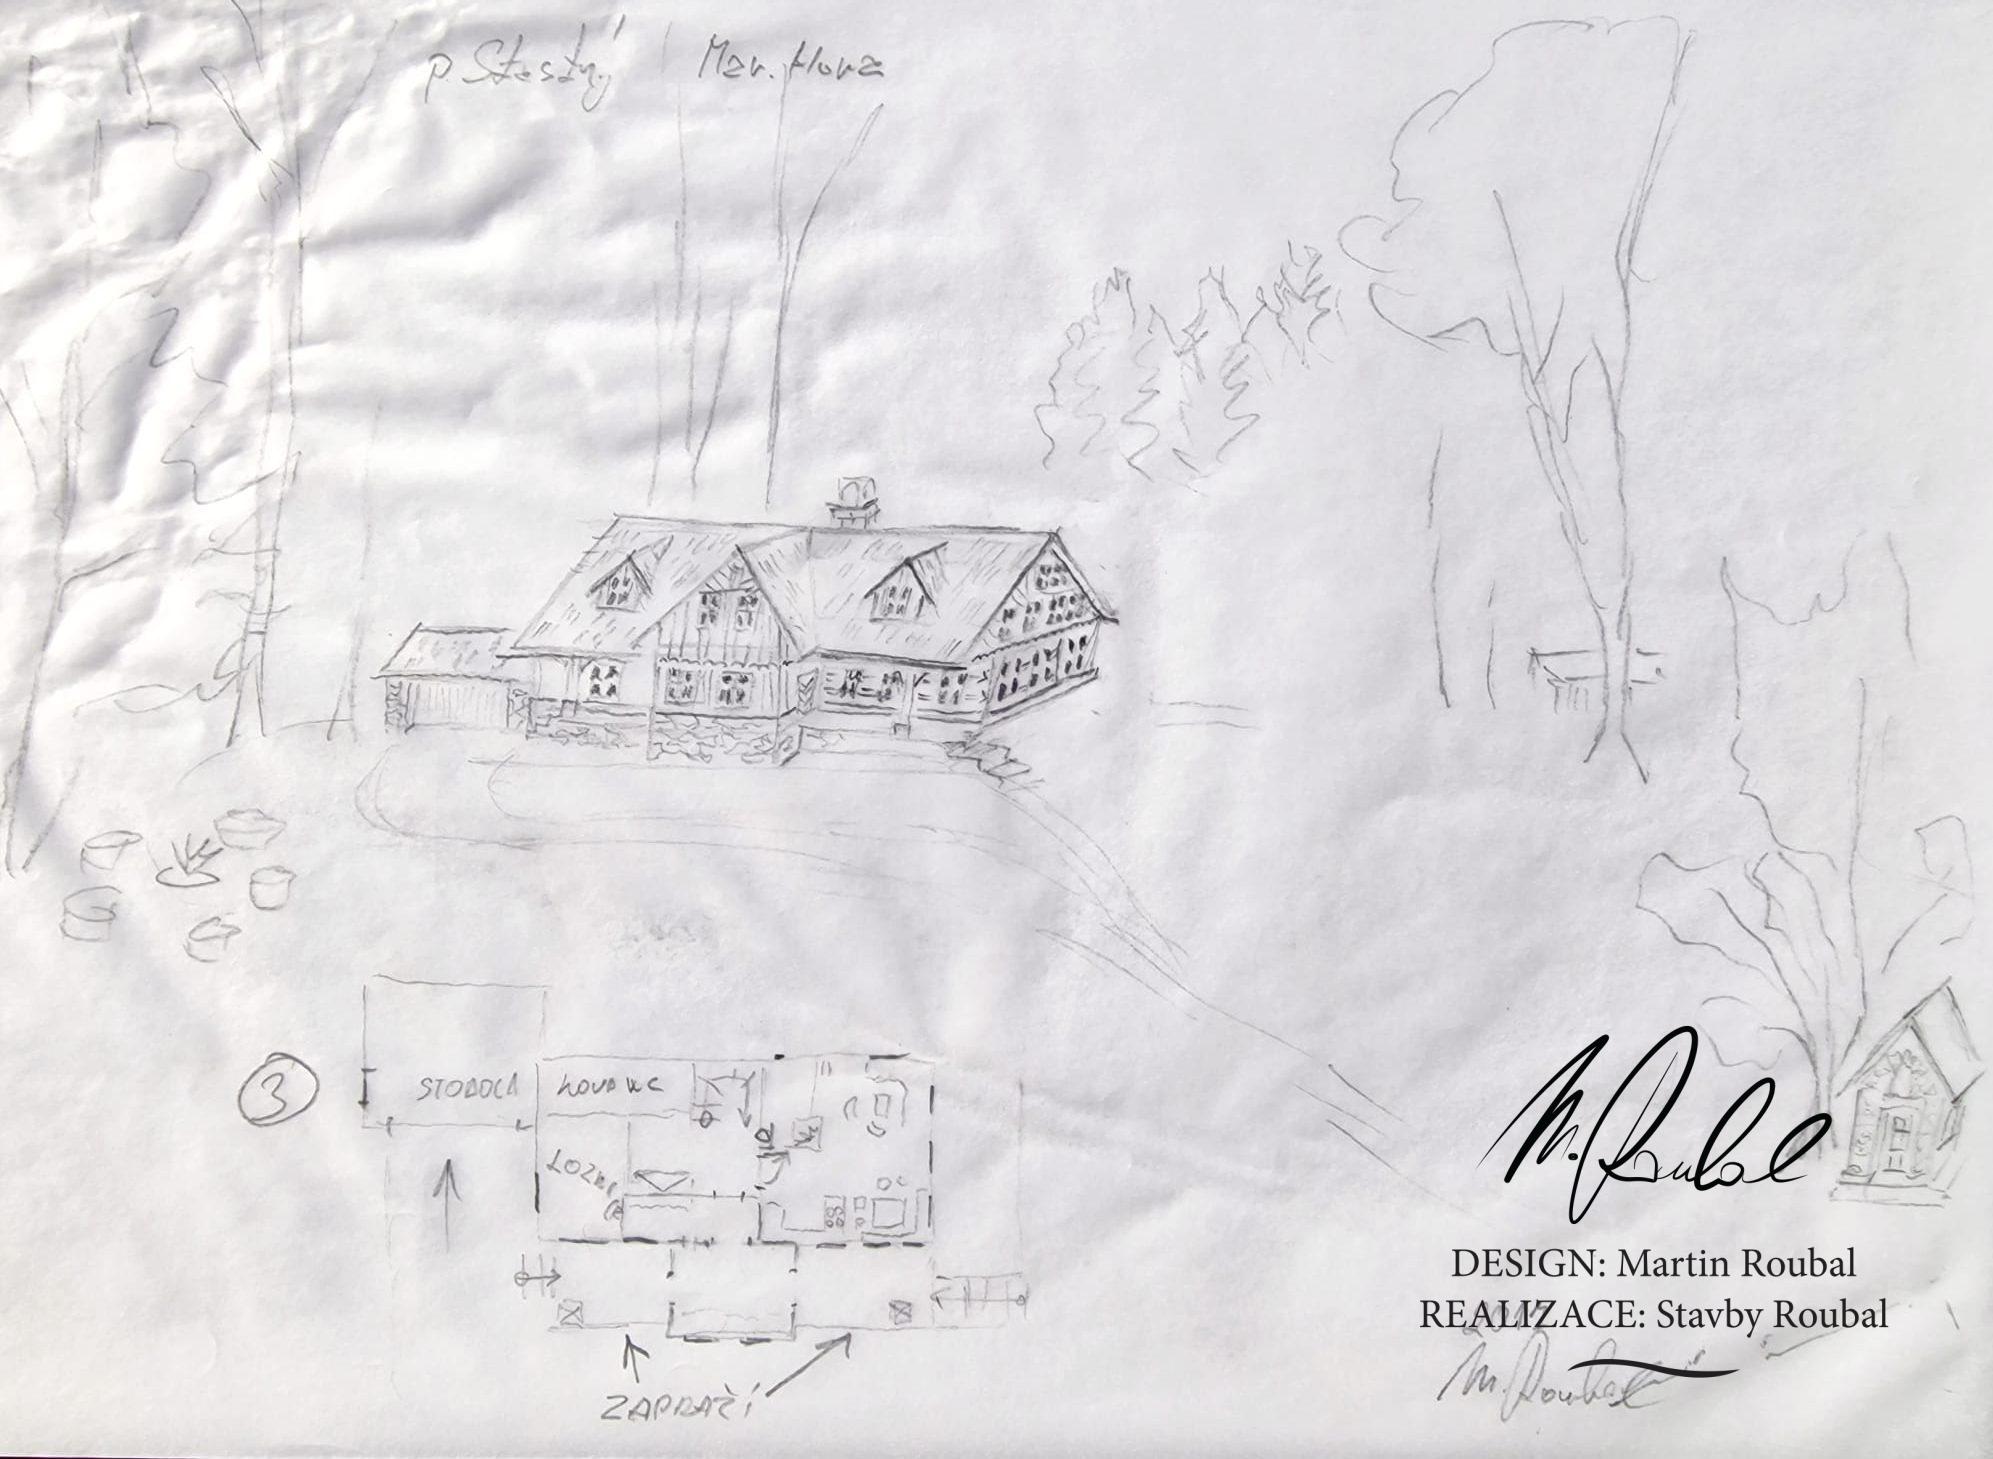 p. Šťastný Mar. Hora
3
STODOLA
KOUP WC
LOŽNI
ZÁPRAŽÍ
M. Roubal
DESIGN: Martin Roubal
REALIZACE: Stavby Roubal
M. Roubal